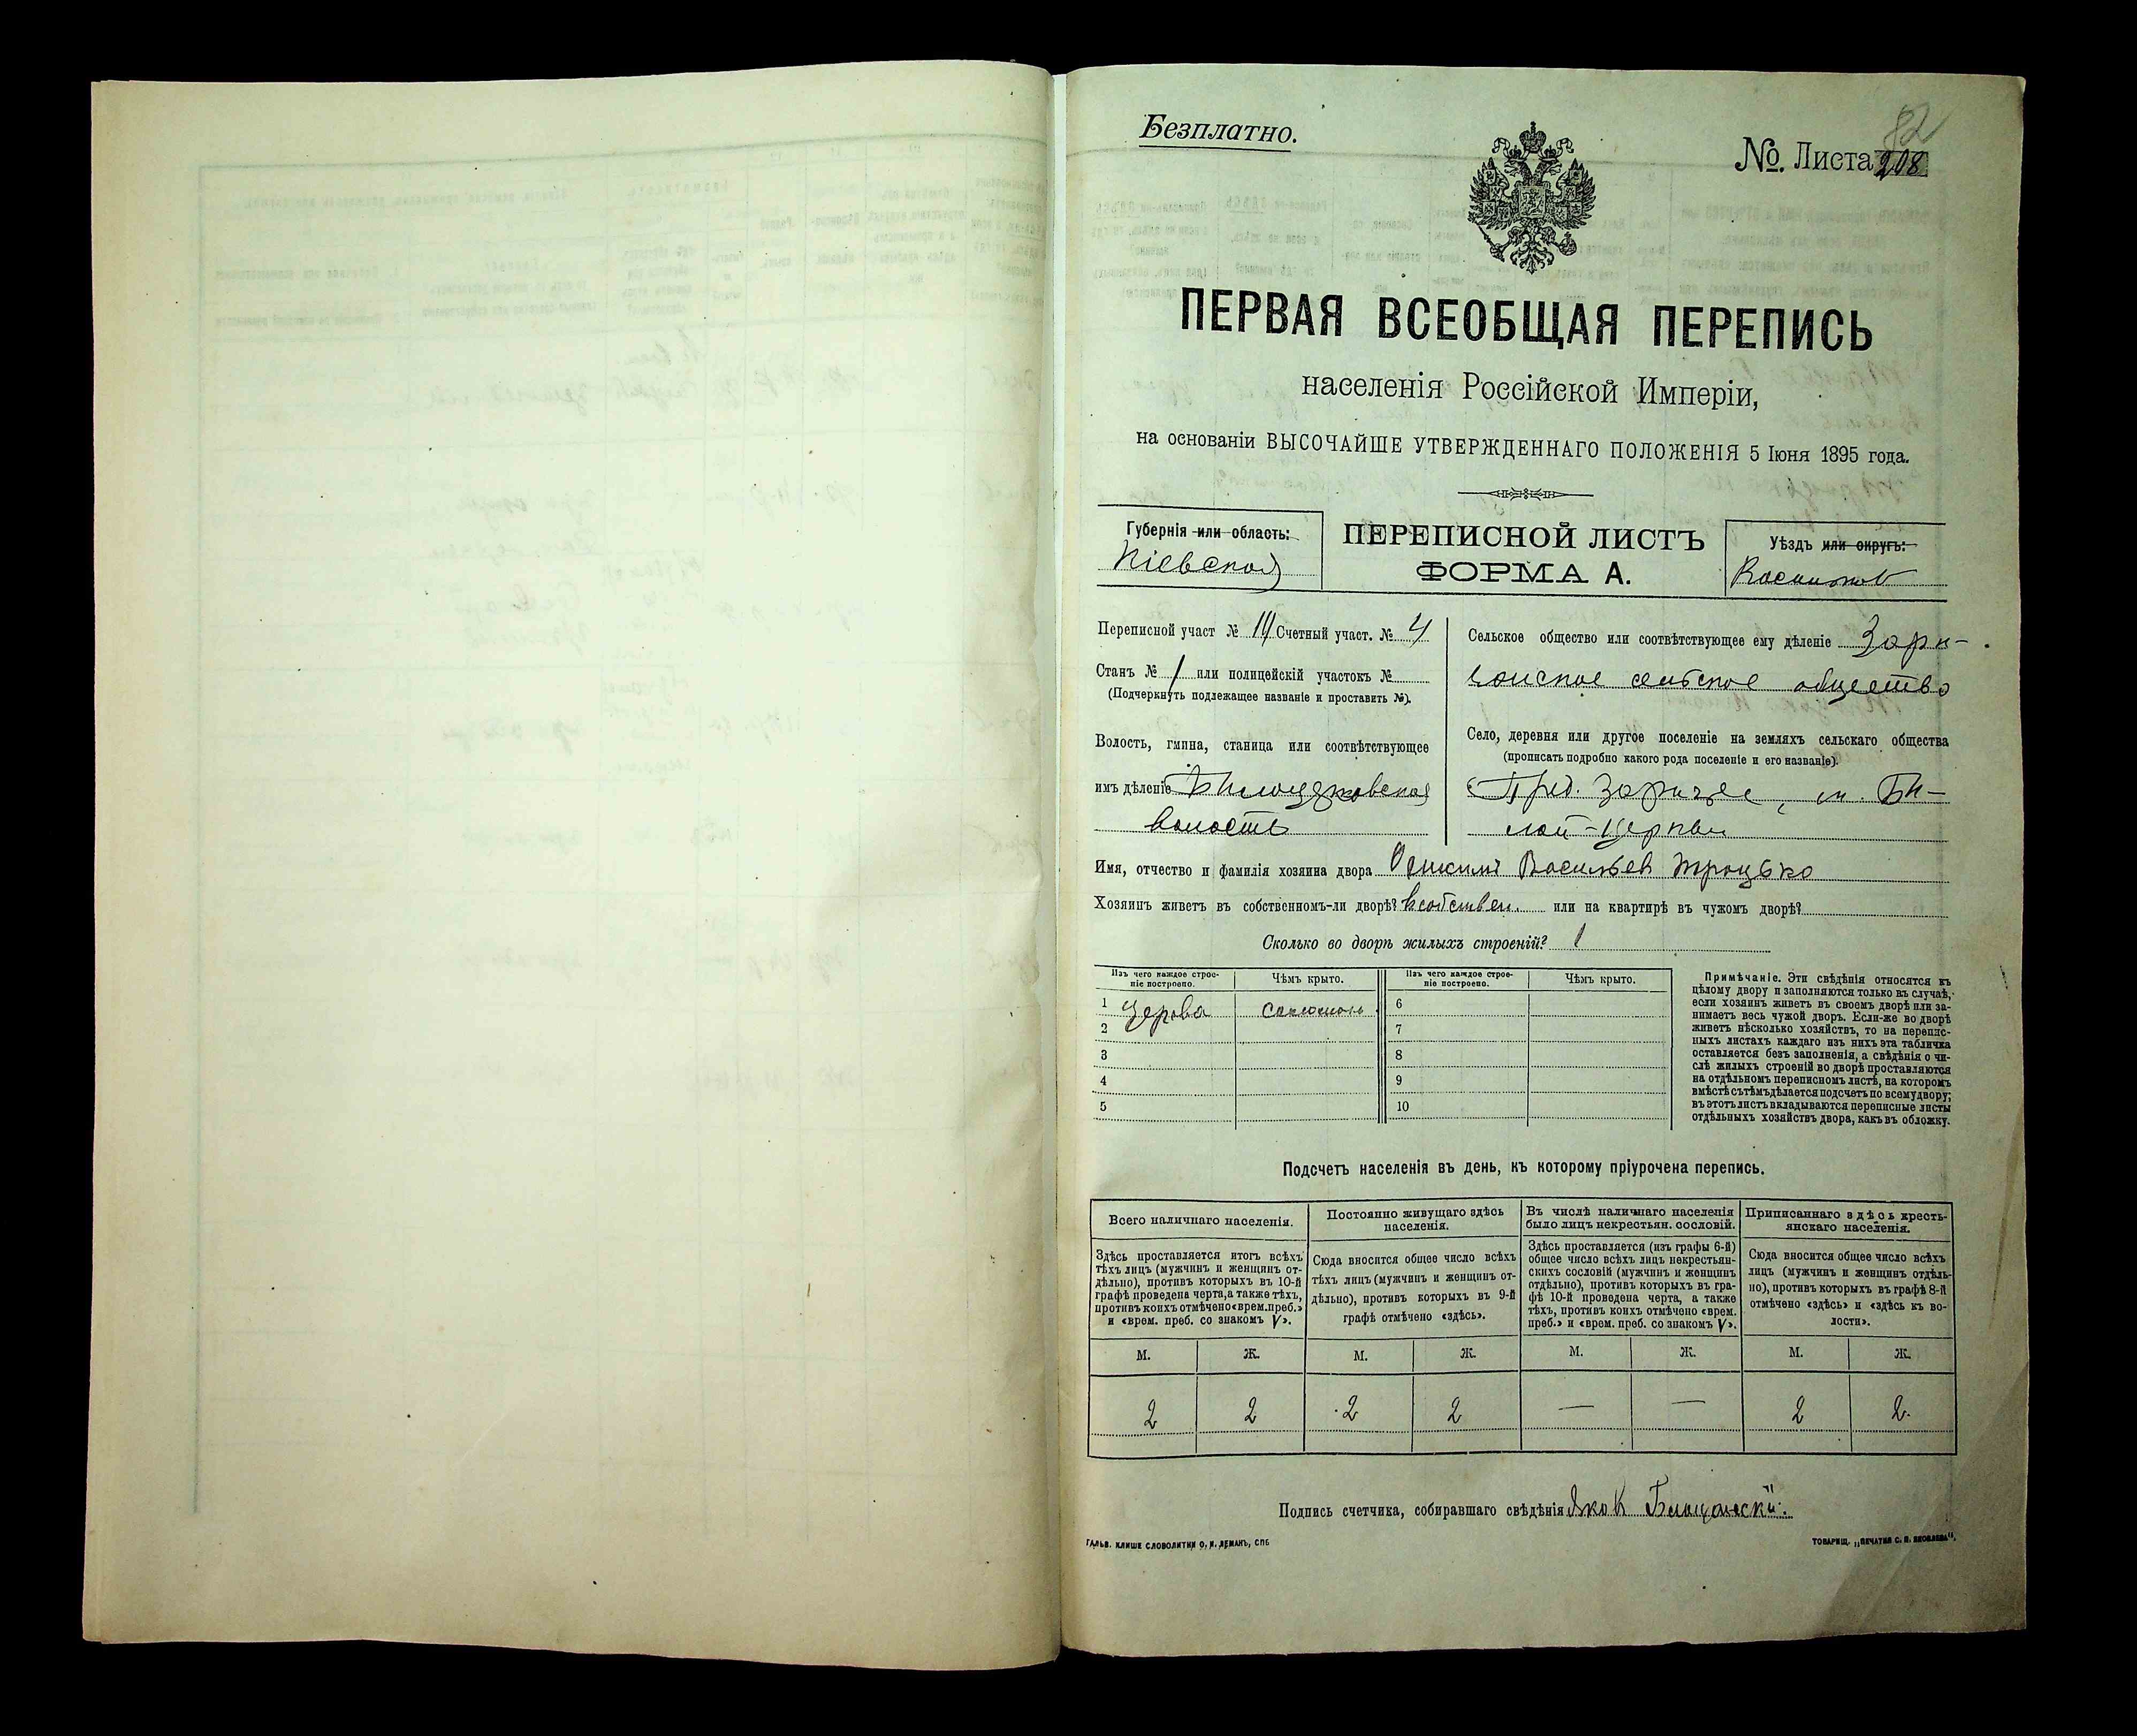 Безплатно.
82
№. Листа 208
ПЕРВАЯ ВСЕОБЩАЯ ПЕРЕПИСЬ
населенія Россійской Имперіи,
на основаніи ВЫСОЧАЙШЕ УТВЕРЖДЕННАГО ПОЛОЖЕНІЯ 5 Іюня 1895 года.
Губернія или область:
Кіевская
ПЕРЕПИСНОЙ ЛИСТЪ
ФОРМА А.
Уѣздъ или округъ:
Васильков
Переписной участ № 14 Счетный участ. № 4
Станъ № 1 или полицейскій участокъ №
(Подчеркнуть подлежащее названіе и проставить №).
Волость, гмина, станица или соотвѣтствующее
имъ дѣленіе Бѣлоцерковская
волость
Сельское общество или соотвѣтствующее ему дѣленіе Заре-
чанское сельское общество
Село, деревня или другое поселеніе на земляхъ сельскаго общества
(прописать подробно какого рода поселеніе и его названіе).
Пред. Заречье, м. Бѣ-
лой-Церкви
Имя, отчество и фамилія хозяина двора Васильев Троцько
Хозяинъ живетъ въ собственномъ-ли дворѣ? в собствен. или на квартирѣ въ чужомъ дворѣ?
Сколько во дворѣ жилыхъ строеній? 1
Изъ чего каждое строе-
ніе построено.
Чѣмъ крыто.
Изъ чего каждое строе-
ніе построено.
Чѣмъ крыто.
1 дерева соломою 6
2 7
3 8
4 9
5 10
Примѣчаніе. Эти свѣдѣнія относятся къ
цѣлому двору и заполняются только въ случаѣ,
если хозяинъ живетъ въ своемъ дворѣ или за-
нимаетъ весь чужой дворъ. Если-же во дворѣ
живетъ нѣсколько хозяйствъ, то на перепис-
ныхъ листахъ каждаго изъ нихъ эта табличка
оставляется безъ заполненія, а свѣдѣнія о чи-
слѣ жилыхъ строеній во дворѣ проставляются
на отдѣльномъ переписномъ листѣ, на которомъ
вмѣстѣ съ тѣмъ дѣлается подсчетъ по всему двору;
въ этотъ листъ вкладываются переписные листы
отдѣльныхъ хозяйствъ двора, какъ въ обложку.
Подсчетъ населенія въ день, къ которому пріурочена перепись.
Всего наличнаго населенія.
Здѣсь проставляется итогъ всѣхъ
тѣхъ лицъ (мужчинъ и женщинъ от-
дѣльно), противъ которыхъ въ 10-й
графѣ проведена черта, а также тѣхъ,
противъ коихъ отмѣчено «врем. преб.»
и «врем. преб. со знакомъ V».
Постоянно живущаго здѣсь
населенія.
Сюда вносится общее число всѣхъ
тѣхъ лицъ (мужчинъ и женщинъ от-
дѣльно), противъ которыхъ въ 9-й
графѣ отмѣчено «здѣсь».
Въ числѣ наличнаго населенія
было лицъ некрестьян. сословій.
Здѣсь проставляется (изъ графы 6-й)
общее число всѣхъ лицъ некрестьян-
скихъ сословій (мужчинъ и женщинъ
отдѣльно), противъ которыхъ въ гра-
фѣ 10-й проведена черта, а также
тѣхъ, противъ коихъ отмѣчено «врем.
преб.» и «врем. преб. со знакомъ V».
Приписаннаго здѣсь кресть-
янскаго населенія.
Сюда вносится общее число всѣхъ
лицъ (мужчинъ и женщинъ отдѣль-
но), противъ которыхъ въ графѣ 8-й
отмѣчено «здѣсь» и «здѣсь къ во-
лости».
М. Ж. М. Ж. М. Ж. М. Ж.
2 2 2 2 — — 2 2
Подпись счетчика, собиравшаго свѣдѣнія Яков
ГАЛЬВ. КЛИШЕ СЛОВОЛИТНИ О. И. ЛЕМАНЪ, СПБ
ТОВАРИЩ. „ПЕЧАТНЯ С. П. ЯКОВЛЕВА".